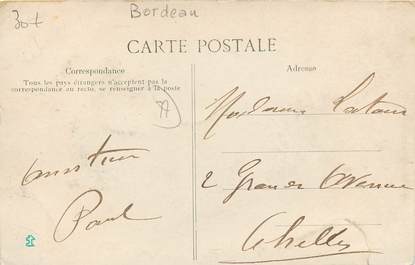 30+
Bordeau
CARTE POSTALE
Correspondance
Tous les pays étrangers n'acceptent pas la
correspondance au recto, se renseigner à la poste
Adresse
77
Madame
2 Avenue
Chelles
Paul